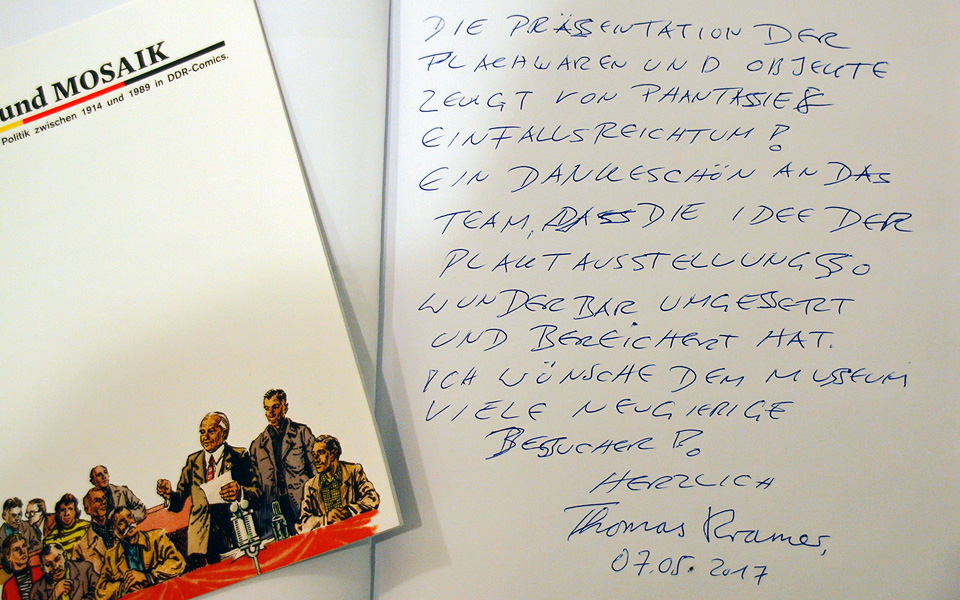 und MOSAIK
Politik zwischen 1914 und 1989 in DDR-Comics.
DIE PRÄSENTATION DER
PLAKWAREN UND OBJEKTE
ZEUGT VON PHANTASIE &
EINFALLSREICHTUM!
EIN DANKESCHÖN AN DAS
TEAM, DASS DIE IDEE DER
PLAKTAUSSTELLUNG SO
WUNDERBAR UMGESETZT
UND BEREICHERT HAT.
ICH WÜNSCHE DEM MUSEUM
VIELE NEUGIERIGE
BESUCHER!
HERZLICH
Thomas Kramer,
07.05.2017